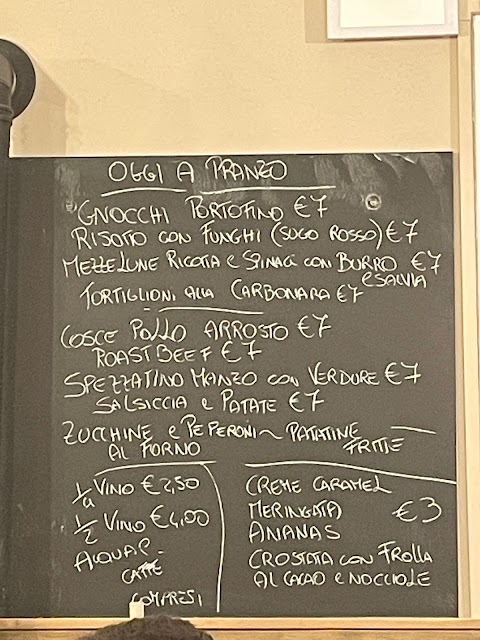 OGGI A PRANZO
GNOCCHI PORTOFINO €7
RISOTTO CON FUNGHI (SUGO ROSSO) €7
MEZZELUNE RICOTTA e SPINACI CON BURRO €7
e SALVIA
TORTIGLIONI ALLA CARBONARA €7
COSCE POLLO ARROSTO €7
ROAST BEEF €7
SPEZZATINO MANZO CON VERDURE €7
SALSICCIA e PATATE €7
ZUCCHINE e PEPERONI ~ PATATINE
AL FORNO FRITTE
1/4 VINO €2,50
1/2 VINO €4,00
ACQUA e
CAFFE
COMPRESI
CREME CARAMEL
MERINGATA €3
ANANAS
CROSTATA CON FROLLA
AL CACAO e NOCCIOLE